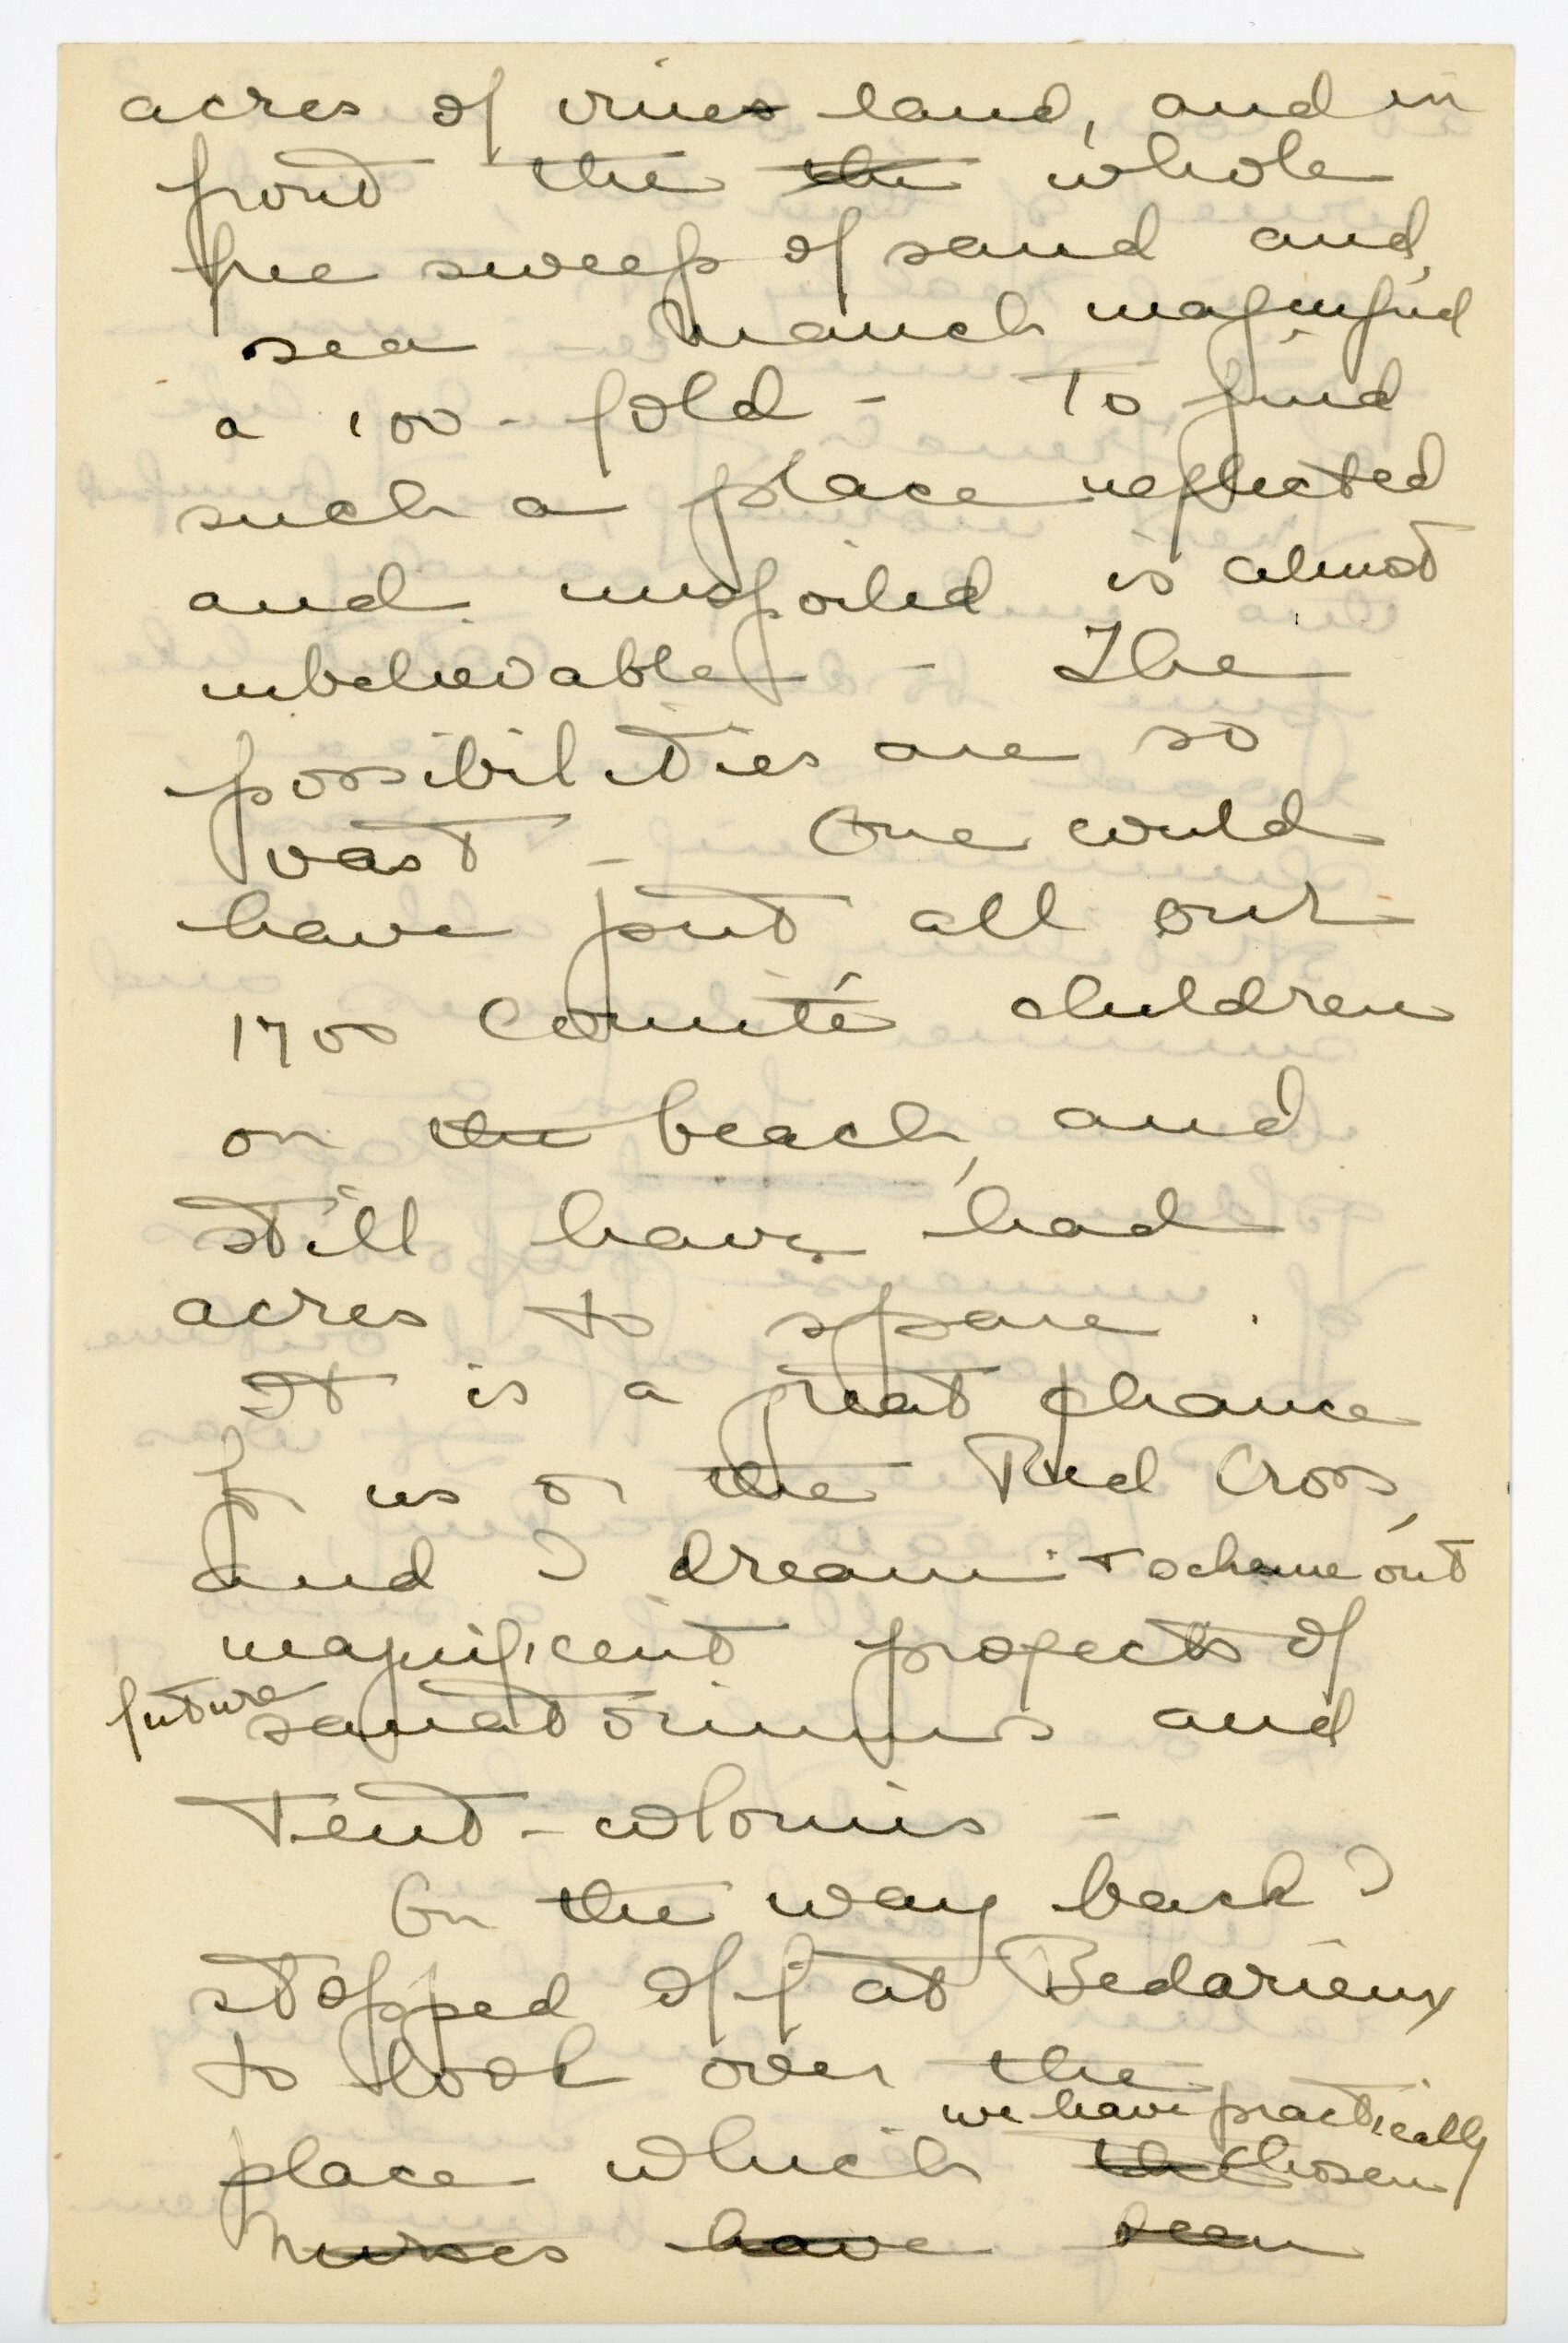 acres of vines land, and in
front the the whole
free sweep of sand and
sea Nauset magnified
a 100-fold - To find
such a place neglected
and unspoiled is almost
unbelievable - The
possibilities are so
vast - One could
have put all our
1700 Comité children
on the beach, and
still have had
acres to spare.
It is a great chance
for us or the Red Cross,
and I dream + scheme out
magnificent projects of
future sanatoriums and
tent-colonies -
On the way back I
stopped off at Bedarieux
to look over the
we have practically
place which the chosen
nurses have seen